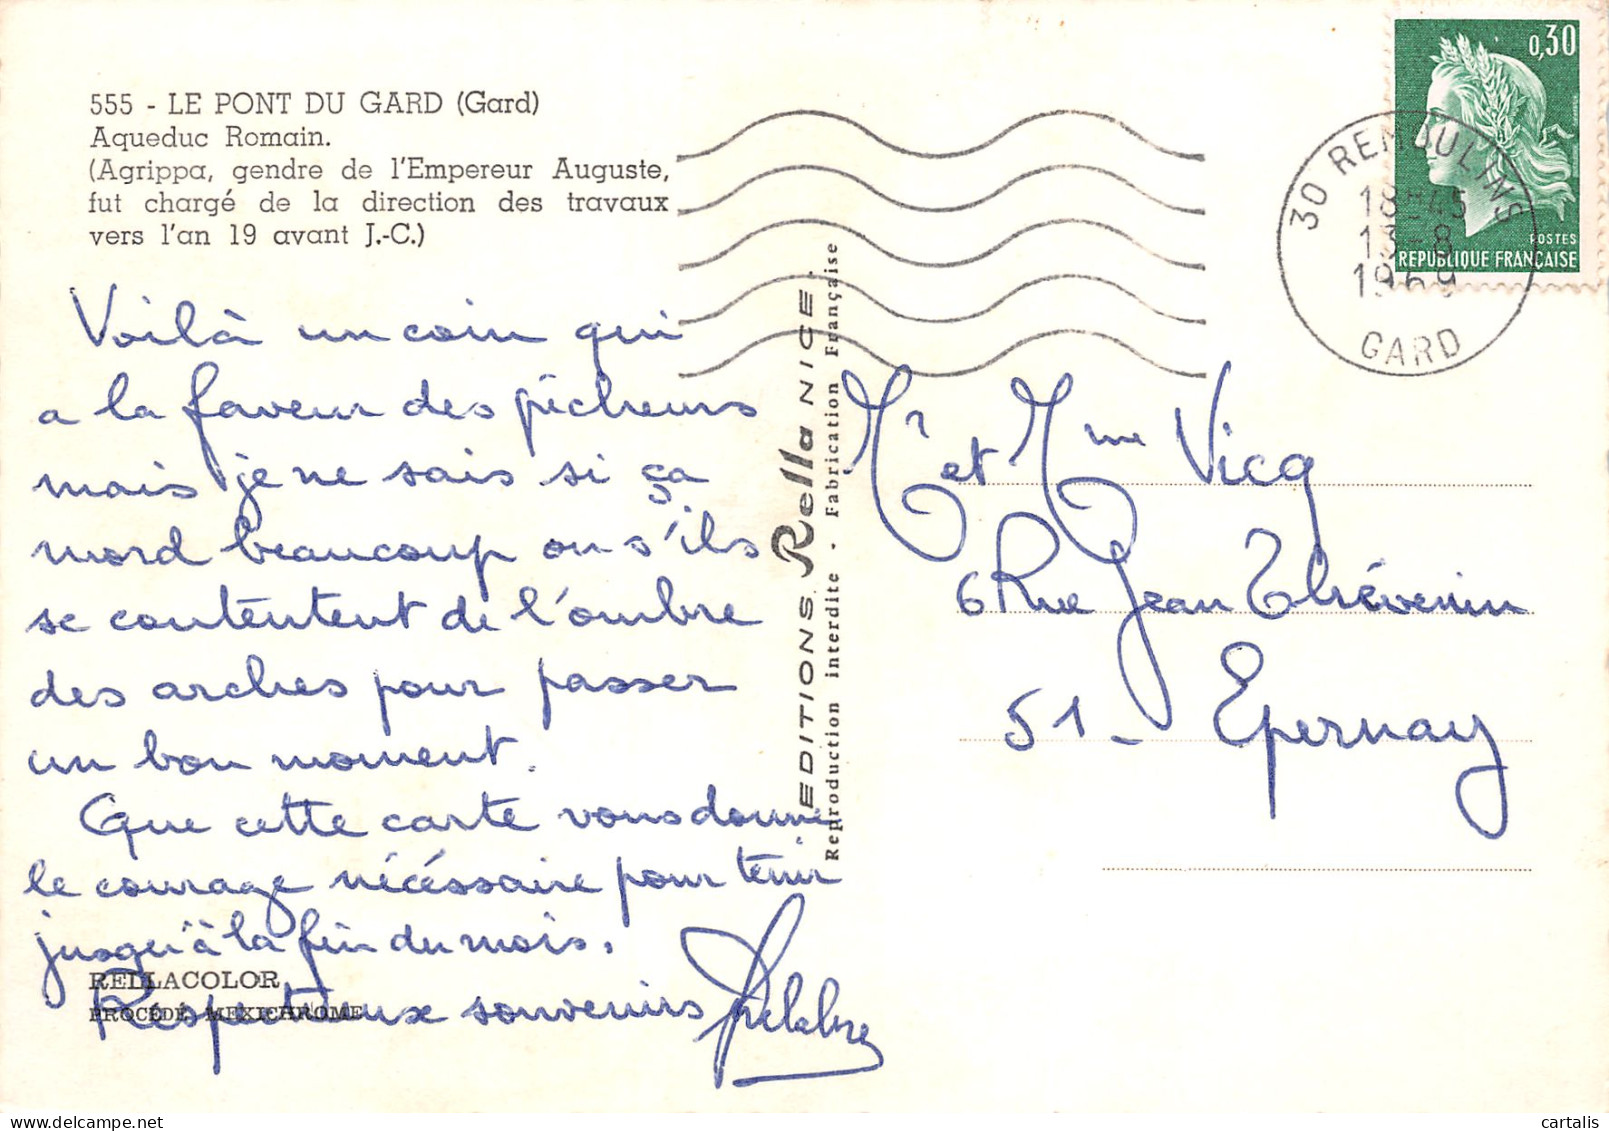 555 - LE PONT DU GARD (Gard)
Aqueduc Romain.
(Agrippa, gendre de l'Empereur Auguste,
fut chargé de la direction des travaux
vers l'an 19 avant J.-C.)
Voilà un coin qui
a la faveur des pêcheurs
mais je ne sais si ça
mord beaucoup ou s'ils
se contentent de l'ombre
des arches pour passer
un bon moment.
Que cette carte vous donne
le courage nécéssaire pour tenir
jusqu'à la fin du mois.
Respectueux souvenirs
RELLACOLOR
PROCÉDÉ MEXICHROME
EDITIONS Rella NICE.
Reproduction interdite - Fabrication Française
0,30
POSTES
REPUBLIQUE FRANÇAISE
30 REMOULINS
18H45
13-8
1969
GARD
Mr et Mme Vicq
6 Rue Jean Thévenin
51 - Epernay
cartalis
www.delcampe.net